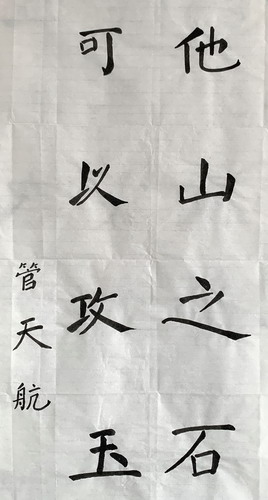 他山之石
可以攻玉
管天航